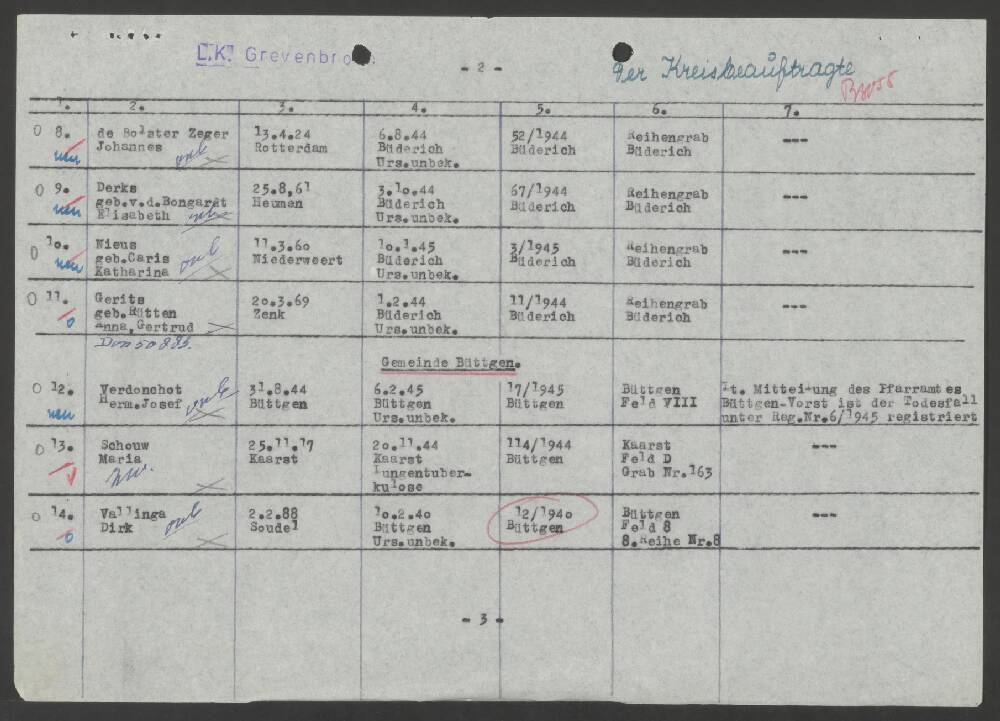 L.K. Grevenbro
- 2 -
Der Kreisbeauftragte
1. 2. 3. 4. 5. 6. 7.
0 8. de Bolster Zeger 13.4.24 6.8.44 52/1944 Reihengrab ---
neu Johannes Rotterdam Büderich Büderich Büderich
Urs.unbek.
0 9. Derks 25.8.61 3.10.44 67/1944 Reihengrab ---
neu geb.v.d.Bongardt Heuman Büderich Büderich Büderich
Elisabeth Urs.unbek.
0 10. Nieus 11.3.60 10.1.45 3/1945 Reihengrab ---
neu geb.Caris Niederweert Büderich Büderich Büderich
Katharina Urs.unbek.
0 11. Gerits 20.3.69 1.2.44 11/1944 Reihengrab ---
0 geb.Hütten Zenk Büderich Büderich Büderich
Anna,Gertrud Urs.unbek.
Don 50 885.
Gemeinde Büttgen.
0 12. Verdonchot 31.8.44 6.2.45 17/1945 Büttgen lt. Mitteilung des Pfarramtes
neu Herm.Josef Büttgen Büttgen Büttgen Feld VIII Büttgen-Vorst ist der Todesfall
Urs.unbek. unter Reg.Nr.6/1945 registriert
0 13. Schouw 25.11.17 20.11.44 114/1944 Kaarst ---
Maria Kaarst Kaarst Büttgen Feld D
Lungentuber- Grab Nr.163
kulose
0 14. Vallinga 2.2.88 10.2.40 12/1940 Büttgen ---
0 Dirk Soudel Büttgen Büttgen Feld 8
Urs.unbek. 8.Reihe Nr.8
- 3 -